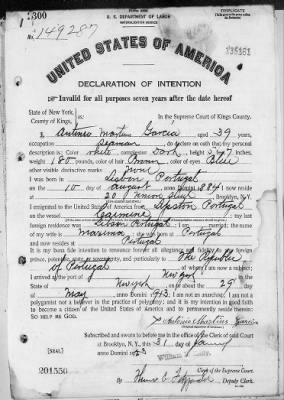 1300
No. 149287
U. S. DEPARTMENT OF LABOR
NATURALIZATION SERVICE
UNITED STATES OF AMERICA
DECLARATION OF INTENTION
Invalid for all purposes seven years after the date hereof
State of New York,
County of Kings,
In the Supreme Court of Kings County.
I, Antonio Martins Garcia aged 39 years,
occupation Seaman do declare on oath that my personal
description is: Color white complexion Dark height 5 feet 7 inches,
weight 180 pounds, color of hair Brown color of eyes Blue
other visible distinctive marks None
I was born in Lisbon Portugal
on the 10 day of August anno Domini 1884 I now reside
at Union Street Brooklyn, N.Y.
I emigrated to the United States of America from Lisbon Portugal
on the vessel my last
foreign residence was Lisbon Portugal
of my wife is Portugal
and now resides at Portugal
It is my bona fide intention to renounce forever all allegiance and fidelity to any foreign
prince, potentate, state, or sovereignty, and particularly to The Republic
of Portugal of whom I am now a subject;
I arrived at the port of New York
State of New York on or about the 29 day
of May anno Domini 1913: I am not an anarchist; I am not a
polygamist nor a believer in the practice of polygamy; and it is my intention in good faith
to become a citizen of the United States of America and to permanently reside therein:
SO HELP ME GOD.
Antonio Martins Garcia
Subscribed and sworn to before me in the office of the Clerk of said Court
at Brooklyn, N.Y., this 31 day of
[SEAL] anno Domini
Clerk of the Supreme Court.
201550
By Deputy Clerk.